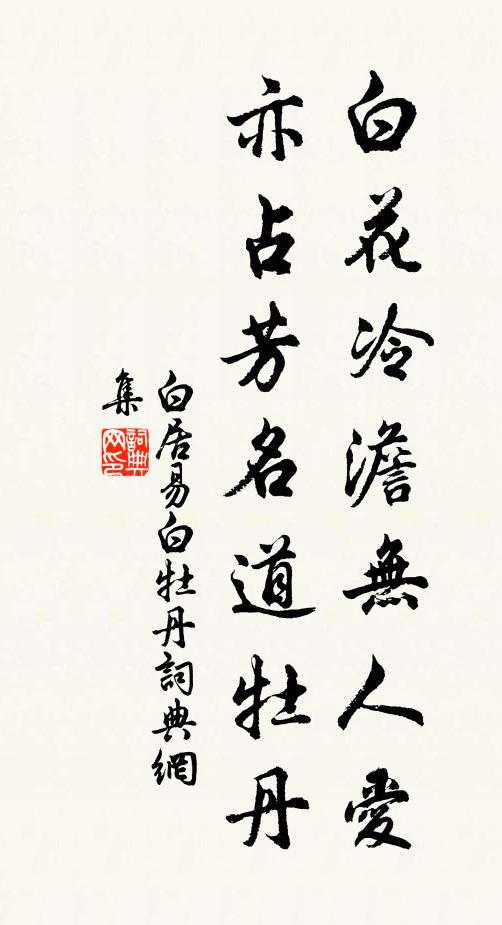 白花冷澹無人愛
亦占芳名道牡丹
白居易白牡丹詞典網
集
詞典网印